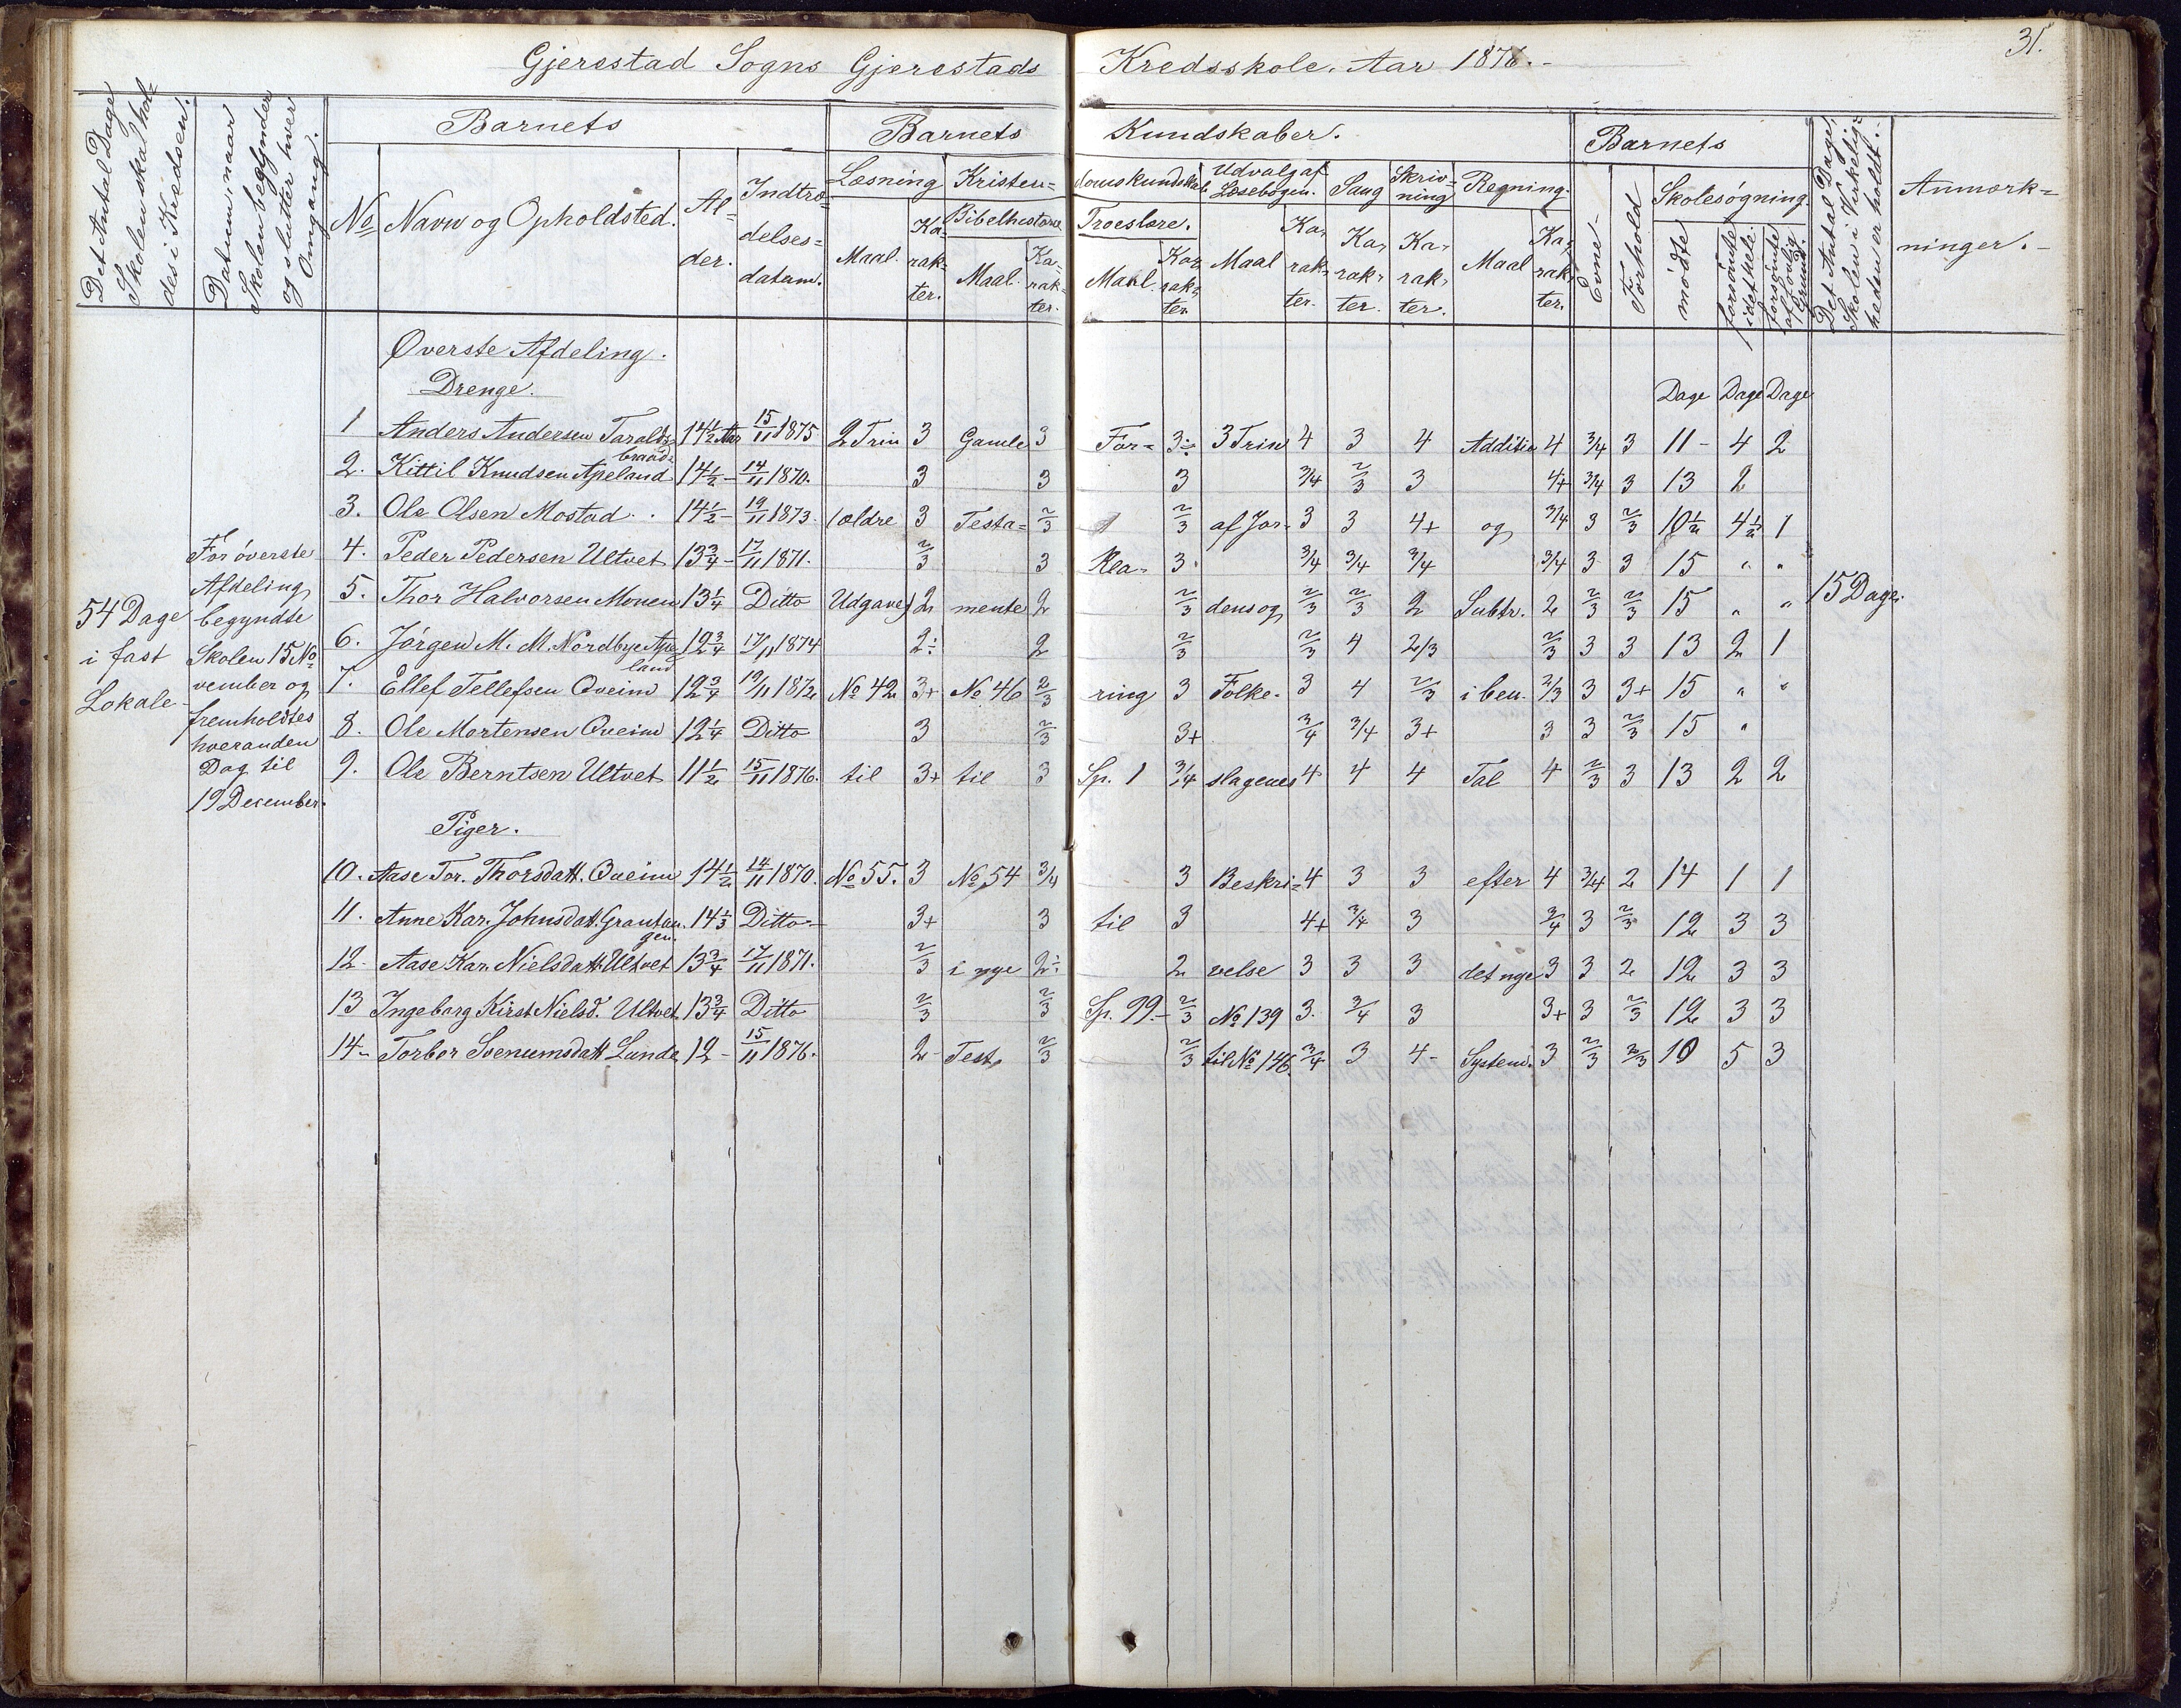 31.
Gjerestad Sogns Gjerestads Kredsskole. Aar 1876.
Det Antal Dage Skolen skal holdes i Kredsen.
Datum, naar Skolen begynder og slutter hver Omgang.
Barnets
Barnets Kundskaber.
Barnets
Det Antal Dage, Skolen i Virkeligheden er holdt.
Anmærk=
ninger.
No Navn og Opholdsted. Al-der. Indtræ=delses=datum.
Læsning Kristen=domskundskab Udvalg af Læsebogen. Sang Skriv=ning Regning.
Bibelhistorie Troeslære.
Maal. Ka-rak-ter. Maal. Ka-rak-ter. Maal. Kar-rak-ter. Maal Ka-rak-ter. Ka-rak-ter. Ka-rak-ter. Maal Ka-rak-ter.
Evne Forhold Skolesøgning.
mødte forsømte i det hele. forsømte af lovlig Grund.
Øverste Afdeling.
Drenge.
Dage Dage Dage
1 Anders Andersen Taralds=braad 14½ Aar 15/11 1875 2 Trin 3 Gamle 3 For= 3÷ 3 Trin 4 3 4 Additio 4 3/4 3 11 - 4 2
2. Kittil Knudsen Apeland 14½ - 14/11 1870. 3 3 3 3/4 2/3 3 4+ 3/4 3 13 2
3. Ole Olsen Mostad 14½ - 19/11 1873. (ældre 3 Testa= 2/3 2/3 af Jor- 3 3 4+ og 3/4 3 2/3 10½ 4½ 1
4. Peder Pedersen Ultvet 13¾ - 17/11 1871. 2/3 3 Kla- 3 3/4 3/4 3/4 3/4 3 3 15 " "
5. Thor Halvorsen Monen 13¼ Ditto Udgave) 2 mente 2 2/3 dens og 2/3 2/3 2 Subtr. 2 2/3 2/3 15 " "
6. Jørgen M. M. Nordbye Ape=land 12¾ 17/11 1874 2÷ 2 2/3 2/3 4 2/3 2/3 3 3 13 2 1
7. Ellef Tellefsen Qveim 12¾ 19/11 1872 No 42 3+ No 46 2/3 ring 3 Folke- 3 4 2/3 i ben. 2/3 3 3+ 15 " "
8. Ole Mortensen Qveim 12¼ Ditto 3 2/3 3+ 3/4 3/4 3+ 3 3 2/3 15 "
9. Ole Berntsen Ultvet 11½ 15/11 1876. til 3+ til 3 Sp. 1 3/4 slagenes 4 4 4 Tal 4 2/3 3 13 2 2
54 Dage
i fast
Lokale
For øverste
Afdeling
begyndte
Skolen 15 No=
vember og
fremholdtes
hveranden
Dag til
19 December.
15 Dage.
Piger.
10. Aase Tor. Thorsdatt. Qveim 14½ 14/11 1870. No 55. 3 No 54 3/4 3 Beskri= 4 3 3 efter 4 3/4 2 14 1 1
11. Anne Kar. Johnsdatt. 14⅓ Ditto 3+ 3 til 3 4+ 3/4 3 3/4 3 2/3 12 3 3
12 Aase Kar. Nielsdatt. Ultvet 13¾ 17/11 1871. 2/3 i nye 2÷ 2 velse 3 3 3 det nye 3 3 2 12 3 3
13 Ingeborg Kirst Nielsd. Ultvet 13¾ Ditto 2/3 2/3 Sp. 99. 2/3 No 139 3. 3/4 3 3+ 3 2/3 12 3 3
14 Torbor Svenumsdatt Lunde 12 - 15/11 1876. 2 Test. 2/3 2/3 til No 146. 3/4 3 4- System. 3 2/3 2/3 10 5 3